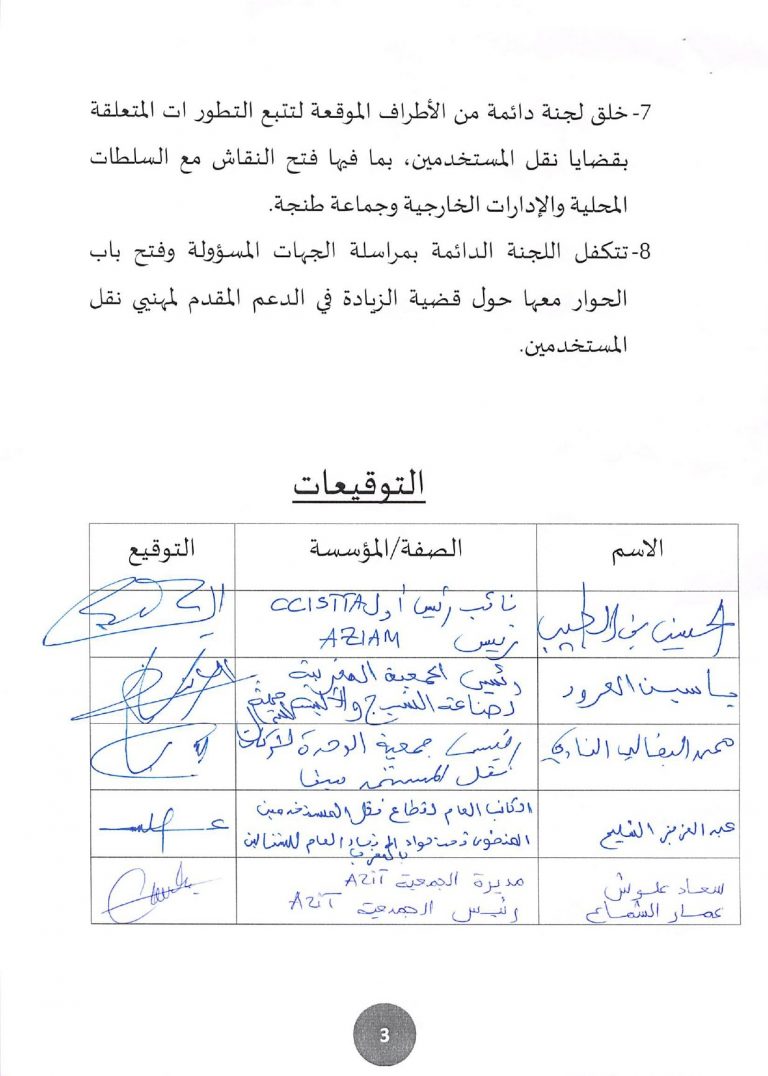 7- خلق لجنة دائمة من الأطراف الموقعة لتتبع التطور ات المتعلقة
بقضايا نقل المستخدمين، بما فيها فتح النقاش مع السلطات
المحلية والإدارات الخارجية وجماعة طنجة.
8- تتكفل اللجنة الدائمة بمراسلة الجهات المسؤولة وفتح باب
الحوار معها حول قضية الزيادة في الدعم المقدم لمهنيي نقل
المستخدمين.
التوقيعات
الاسم الصفة/المؤسسة التوقيع
الحسين بن الطيب نائب رئيس أول CCISTTA
رئيس AZIAM
ياسين العرود رئيس الجمعية المغربية
لصناعة النسيج والألبسة
محمد البقالي رئيس جمعية الوحدة لشركات
نقل
عبد العزيز الكاتب العام لقطاع نقل المستخدمين
المنضوي تحت لواء الاتحاد العام للشغالين
بالمغرب
سعاد علوش مديرة الجمعية AZIT
عمار الشماع رئيس الجمعية AZIT
3